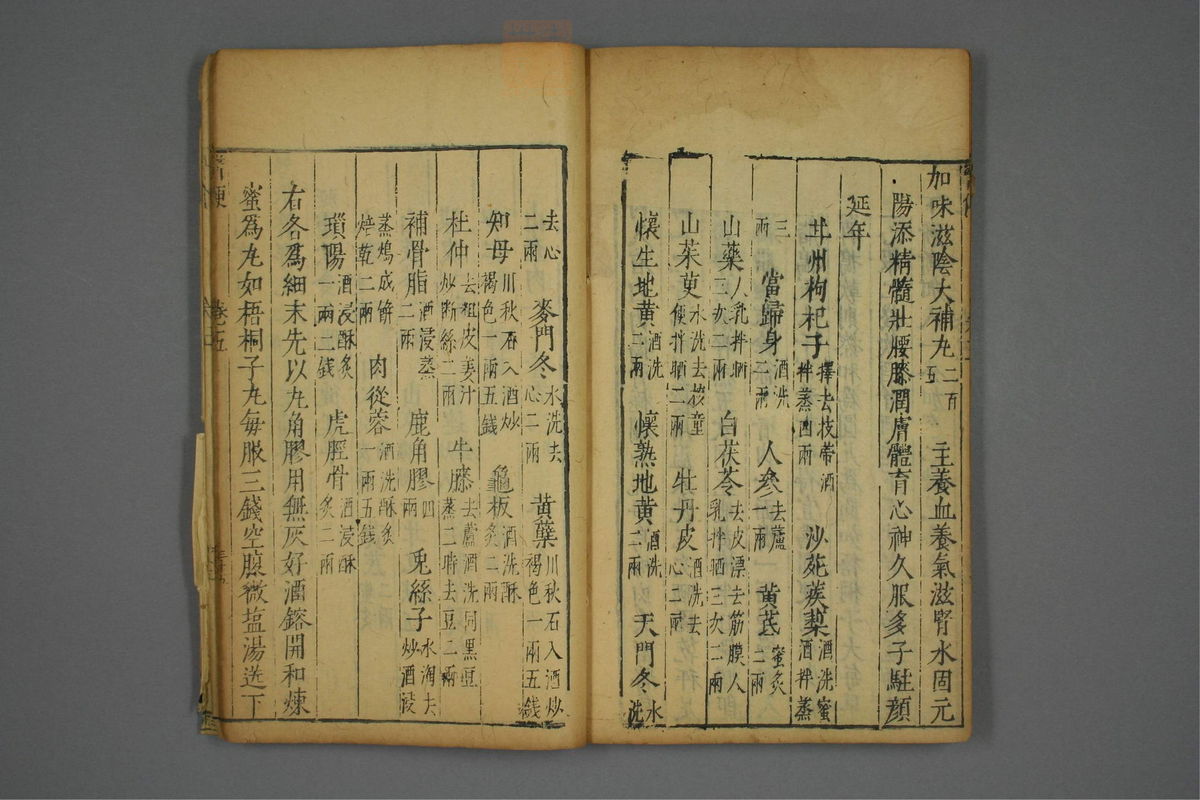 加味滋陰大補丸二百五 主養血養氣滋腎水固元
陽添精髓壯腰膝潤膚體育心神久服多子駐顔
延年
甘州枸杞子揀去枝帶酒拌蒸四兩 沙苑蒺藜酒洗蜜酒拌蒸
三兩 當歸身酒洗二兩 人參去蘆一兩 黄芪蜜炙二兩
山藥人乳拌晒三次二兩 白茯苓去皮漂去筋膜人乳拌晒三次二兩
山茱萸水洗去核童便拌晒二兩 牡丹皮酒洗去心二兩
懷生地黄酒洗二兩 懷熟地黄酒洗二兩 天門冬水洗
去心二兩 麥門冬水洗去心二兩 黄蘗川秋石入酒炒褐色一兩五錢
知母川秋石入酒炒褐色一兩五錢 龜板酒洗酥炙二兩
杜仲去粗皮姜汁炒斷絲二兩 牛膝去蘆酒洗同黑豆蒸二時去豆二兩
補骨脂酒浸蒸二兩 鹿角膠四兩 兎絲子水淘去炒酒浸
蒸搗成餅焙乾二兩 肉從蓉酒洗酥炙一兩五錢
瑣陽酒浸酥炙一兩二錢 虎脛骨酒浸酥炙二兩
右各爲細末先以九角膠用無灰好酒鎔開和煉
蜜爲丸如梧桐子丸每服三錢空腹微塩湯送下
卷五